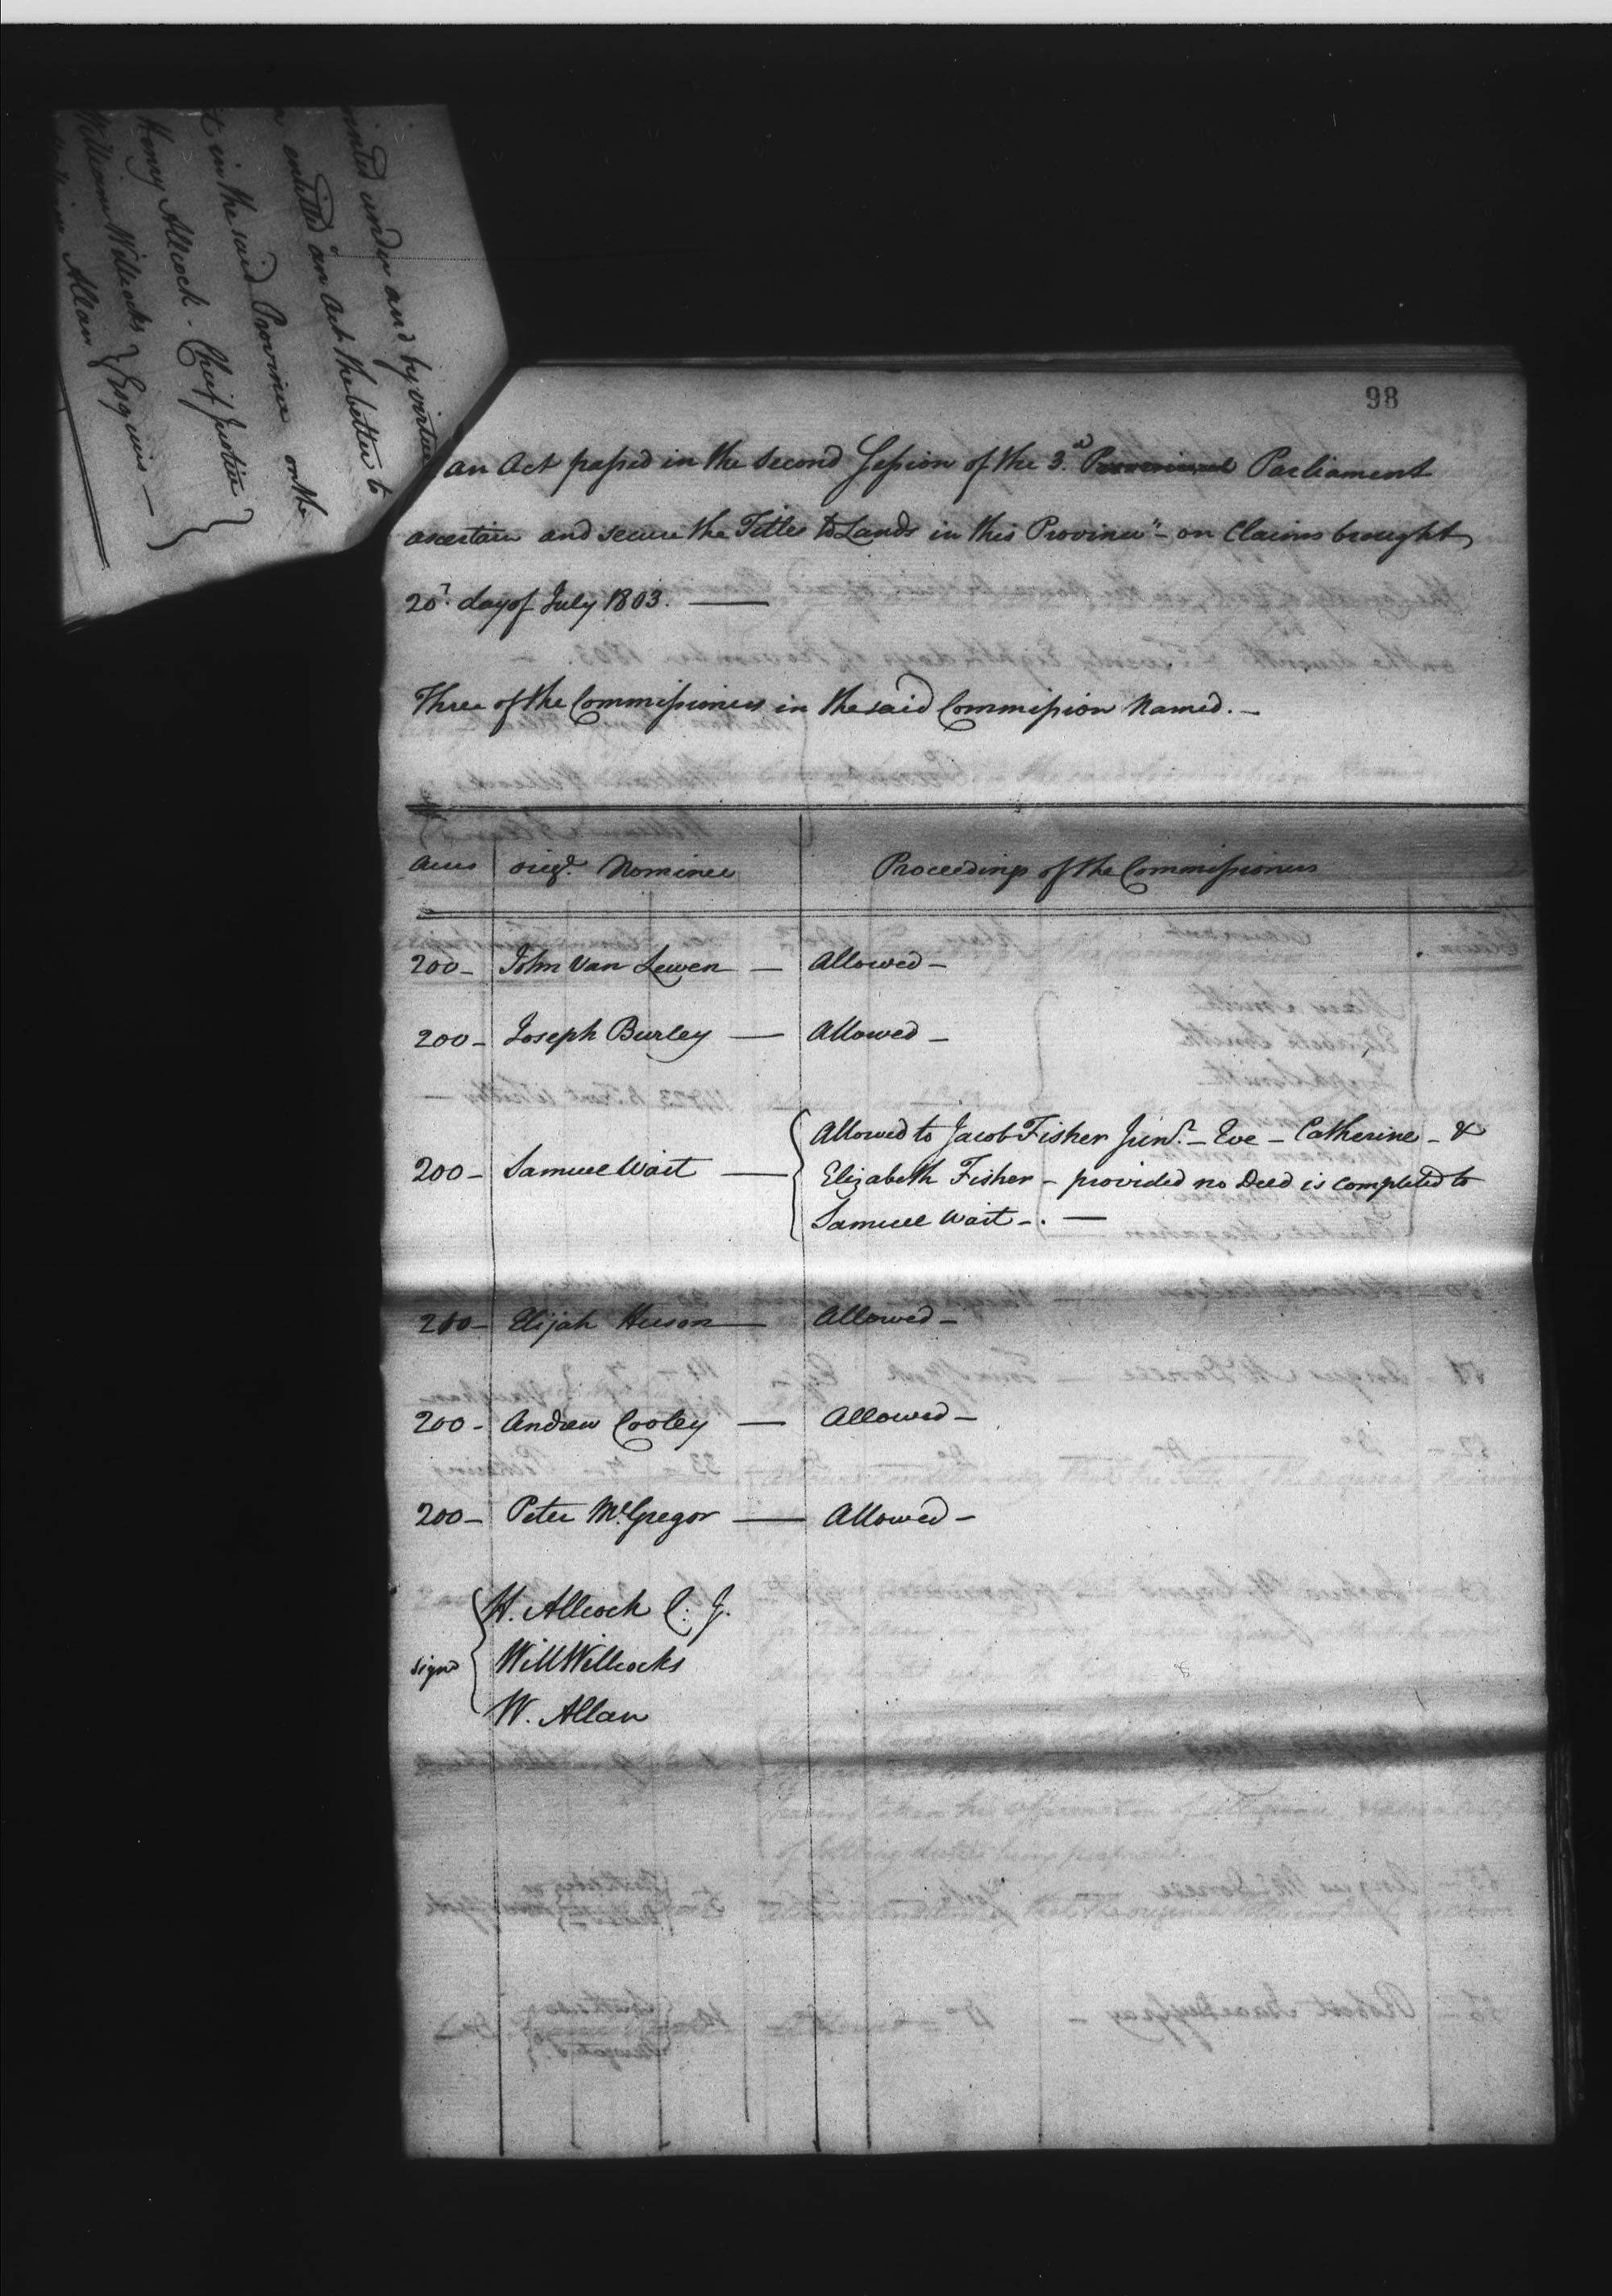 98
inted under and by virtue
entitled "an Act the better to
t in the said Province on the
Henry Allcock - Cheif Justice
William Willcocks } Esquires —
Allan
an Act passed in the second Session of the 3.d Parliament
ascertain and secure the Titles to Lands in this Province" - on Claims brought
20.th day of July 1803. —
Three of the Commissioners in the said Commission Named. —
Acres origl. Nominee Proceedings of the Commissioners
200 - John Van Lewen — Allowed -
200 - Joseph Burley — Allowed -
Allowed to Jacob Fisher Junr. - Eve - Catherine - &
200 - Samuel Wait — Elizabeth Fisher - provided no Deed is completed to
Samuel Wait -. —
200 - Elijah Huson — Allowed -
200 - Andrew Cooley — Allowed -
200 - Peter McGregor — Allowed -
H. Allcock C. J.
signd Will Willcocks
W. Allan